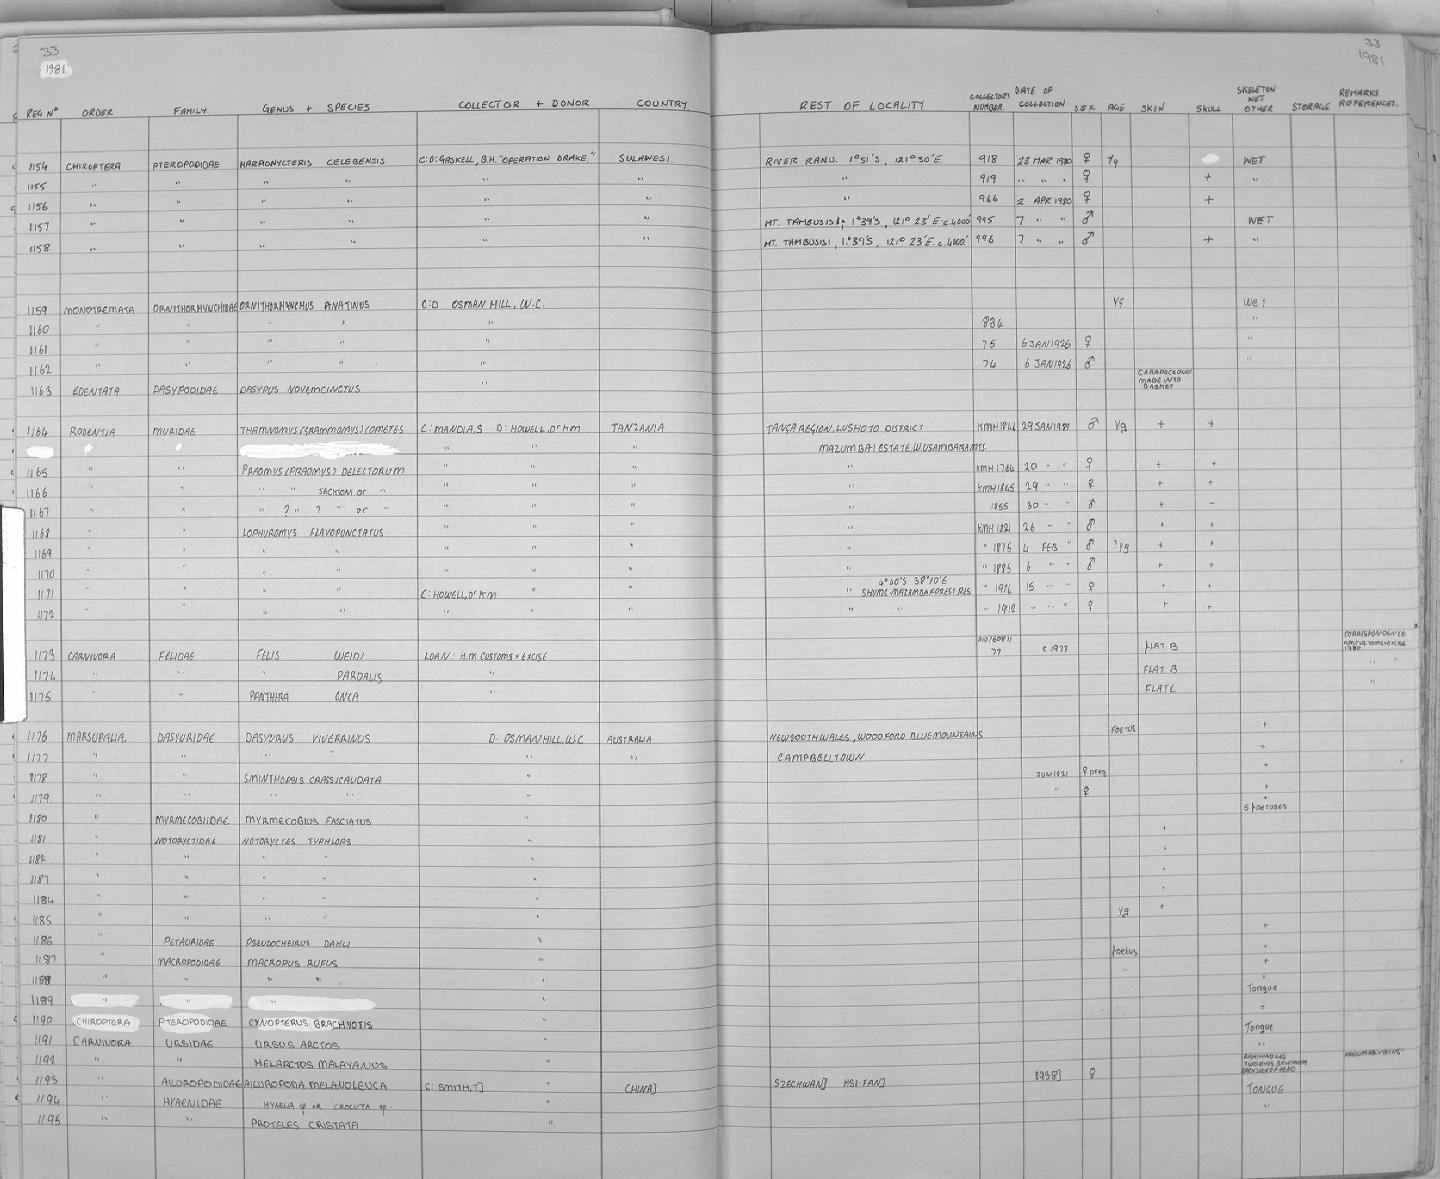 33
1981
33
1981
REG Nº ORDER FAMILY GENUS + SPECIES COLLECTOR + DONOR COUNTRY REST OF LOCALITY COLLECTOR'S NUMBER. DATE OF COLLECTION SEX AGE SKIN SKULL SKELETON WET OTHER STORAGE REMARKS REFERENCES.
1154 CHIROPTERA PTEROPODIDAE HARPIONYCTERIS CELEBENSIS C:D:GASKELL, B.H. "OPERATION DRAKE." SULAWESI. RIVER RANU. 1°51'S, 121°30'E. 918 28 MAR 1980 ♀ Yg WET
1155 " " " " " " " 919 " " " ♀ + "
1156 " " " " " " 966 2 APR 1980 ♀ +
1157 " " " " " " MT. TAMBUSISI, 1°39'S, 121° 23'E. c.4000' 995 7 " " ♂ WET
1158 " " " " " " MT. TAMBUSISI, 1°39'S, 121° 23'E. c.4000' 996 7 " " ♂ + "
1159 MONOTREMATA ORNITHORHYNCHIDAE ORNITHORHYNCHUS ANATINUS C:D OSMAN HILL, W.C. Yg WET
1160 " " " " " 834 "
1161 " " " " " 75 6 JAN 1926 ♀ "
1162 " " " " " 74 6 JAN 1926 ♂ "
1163 EDENTATA DASYPODIDAE DASYPUS NOVEMCINCTUS " CARAPACE ONLY MADE INTO BASKET
1164 RODENTIA MURIDAE THAMNOMYS (GRAMMOMYS) COMETES C: MANDIA, S D: HOWELL, Dr KM TANZANIA TANGA REGION. LUSHOTO DISTRICT KMH 1844 29 JAN 1981 ♂ Yg + +
" " " MAZUMBAI ESTATE, W.USAMBARA MTS.
1165 " " PRAOMYS (PRAOMYS) DELECTORUM " " " " KMH 1764 20 " " ♀ + +
1166 " " " " JACKSONI or " " " " " KMH 1845 29 " " ♀ + +
1167 " " ? " ? " or " " " " " 1855 30 " " ♂ + -
1168 " " LOPHUROMYS FLAVOPUNCTATUS " " " " KMH 1821 26 " " ♂ + +
1169 " " " " " " " " " 1876 4 FEB " ♂ ?Yg + +
1170 " " " " " " " " " 1885 6 " " ♂ + +
4°40'S 38°10'E
1171 " " " " C: HOWELL, Dr KM " " " SHUME-MAZUMBA FOREST RES " 1914 15 " " ♀ + +
1172 " " " " " " " " " " 1912 " " " ♀ + +
1173 CARNIVORA FELIDAE FELIS WEIDI LOAN: H.M CUSTOMS + EXCISE 77 c 1977 FLAT B CORRESPONDENCE
1174 " " " PARDALIS " FLAT B "
1175 " " PANTHERA ONCA " FLAT C "
1176 MARSUPALIA DASYURIDAE DASYURUS VIVERRINUS D: OSMAN HILL, W.C AUSTRALIA NEW SOUTH WALES, WOODFORD BLUE MOUNTAINS FOETUS +
1177 " " " " " " CAMPBELLTOWN +
1178 " " SMINTHOPSIS CRASSICAUDATA " JUN 1921 ♀ preg +
1179 " " " " " " ♀ +
+ 5 foetuses
1180 " MYRMECOBIIDAE MYRMECOBIUS FASCIATUS "
1181 " NOTORYCTIDAE NOTORYCTES TYPHLOPS " +
1182 " " " " " +
1183 " " " " " +
1184 " " " " " +
1185 " " " " " Yg +
1186 " PETAURIDAE PSEUDOCHEIRUS DAHLI " +
1187 " MACROPODIDAE MACROPUS RUFUS " foetus +
1188 " " " " " " +
1189 " " " " Tongue
1190 CHIROPTERA PTEROPODIDAE CYNOPTERUS BRACHYOTIS " +
1191 CARNIVORA URSIDAE URSUS ARCTOS " Tongue
1192 " " HELARCTOS MALAYANUS " "
1193 " AILUROPODIDAE AILUROPODA MELANOLEUCA C: SMITH, T] " CHINA] SZECHWAN] HSI-FAN] 1938] ♀
1194 " HYAENIDAE HYAENA sp or CROCUTA sp. " TONGUE
1195 " " PROTELES CRISTATA " "